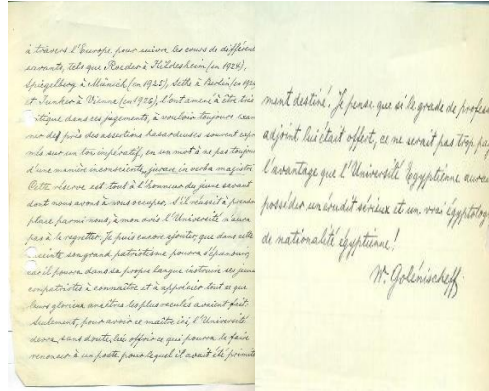 à travers l'Europe, pour suivre les cours de différents
savants, tels que Roeder à Hildesheim (en 1924),
Spiegelberg à Münich (en 1925), Sethe à Berlin (en 192
et Junker à Vienne (en 1926), l'ont amené à être très
critique dans ces jugements, à vouloir toujours exa-
miner de près des assertions hasardeuses souvent expri-
mées sur un ton impératif, en un mot à ne pas toujours
d'une manière inconsciente, jurare in verba magistri.
Cette réserve est tout à l'honneur du jeune savant
dont nous avons à nous occuper. S'il réussit à prendre
place parmi nous, à mon avis l'Université n'aura
pas à le regretter. Je puis encore ajouter, que dans cette
enceinte son grand patriotisme pourra s'épanouir,
car il pourra dans sa propre langue instruire ses jeunes
compatriotes à connaître et à apprécier tout ce que
leurs glorieux ancêtres les plus reculés avaient fait.
Seulement, pour avoir ce maître ici, l'Université
devra, sans doute, lui offrir ce qui pourra le faire
renoncer à un poste, pour lequel il avait été primiti
ment destiné. Je pense, que si le grade de profess
adjoint lui était offert, ce ne serait pas trop pay
l'avantage que l'Université Égyptienne aurait
posséder un érudit sérieux et un vrai égyptolog
de nationalité égyptienne!
W. Golénischeff